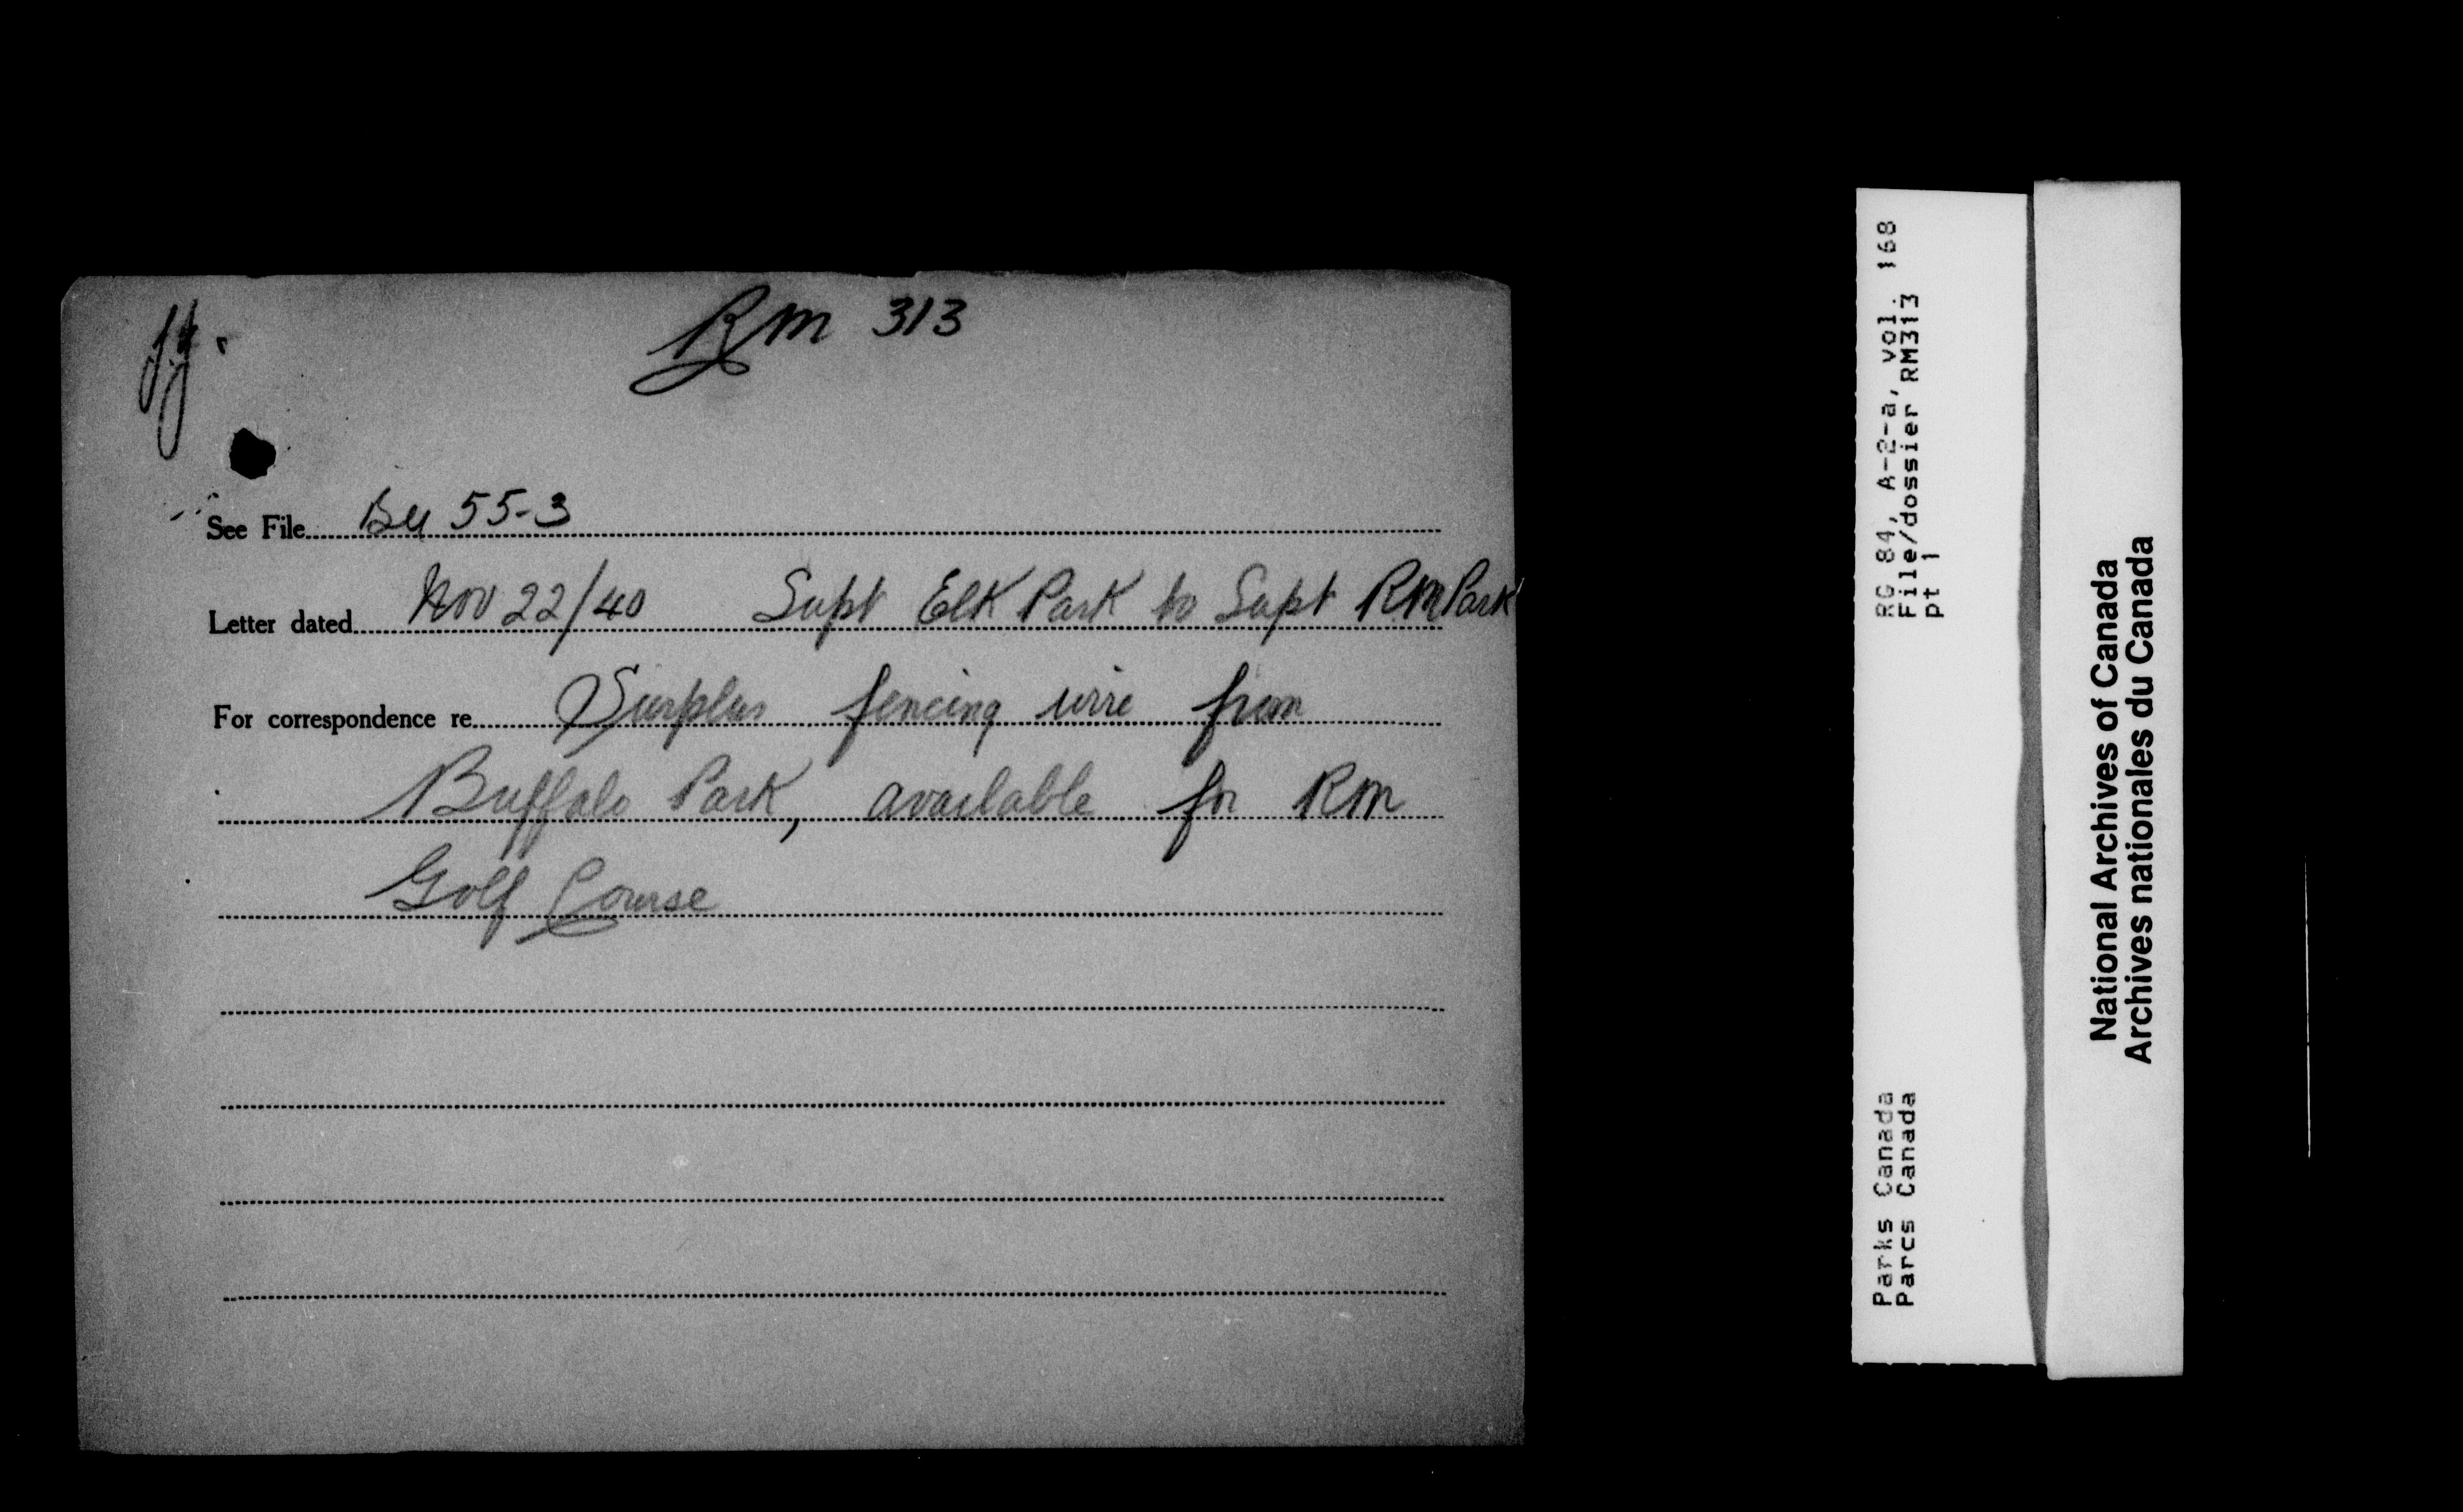 RM 313
See File Bu 55-3
Letter dated Nov 22/40 Supt Elk Park to Supt RM Park
For correspondence re Surplus fencing wire from
Buffalo Park, available for RM
Golf Course
RG 84, A-2-a, vol. 168
File/dossier RM313
pt 1
Parks Canada
Parcs Canada
National Archives of Canada
Archives nationales du Canada